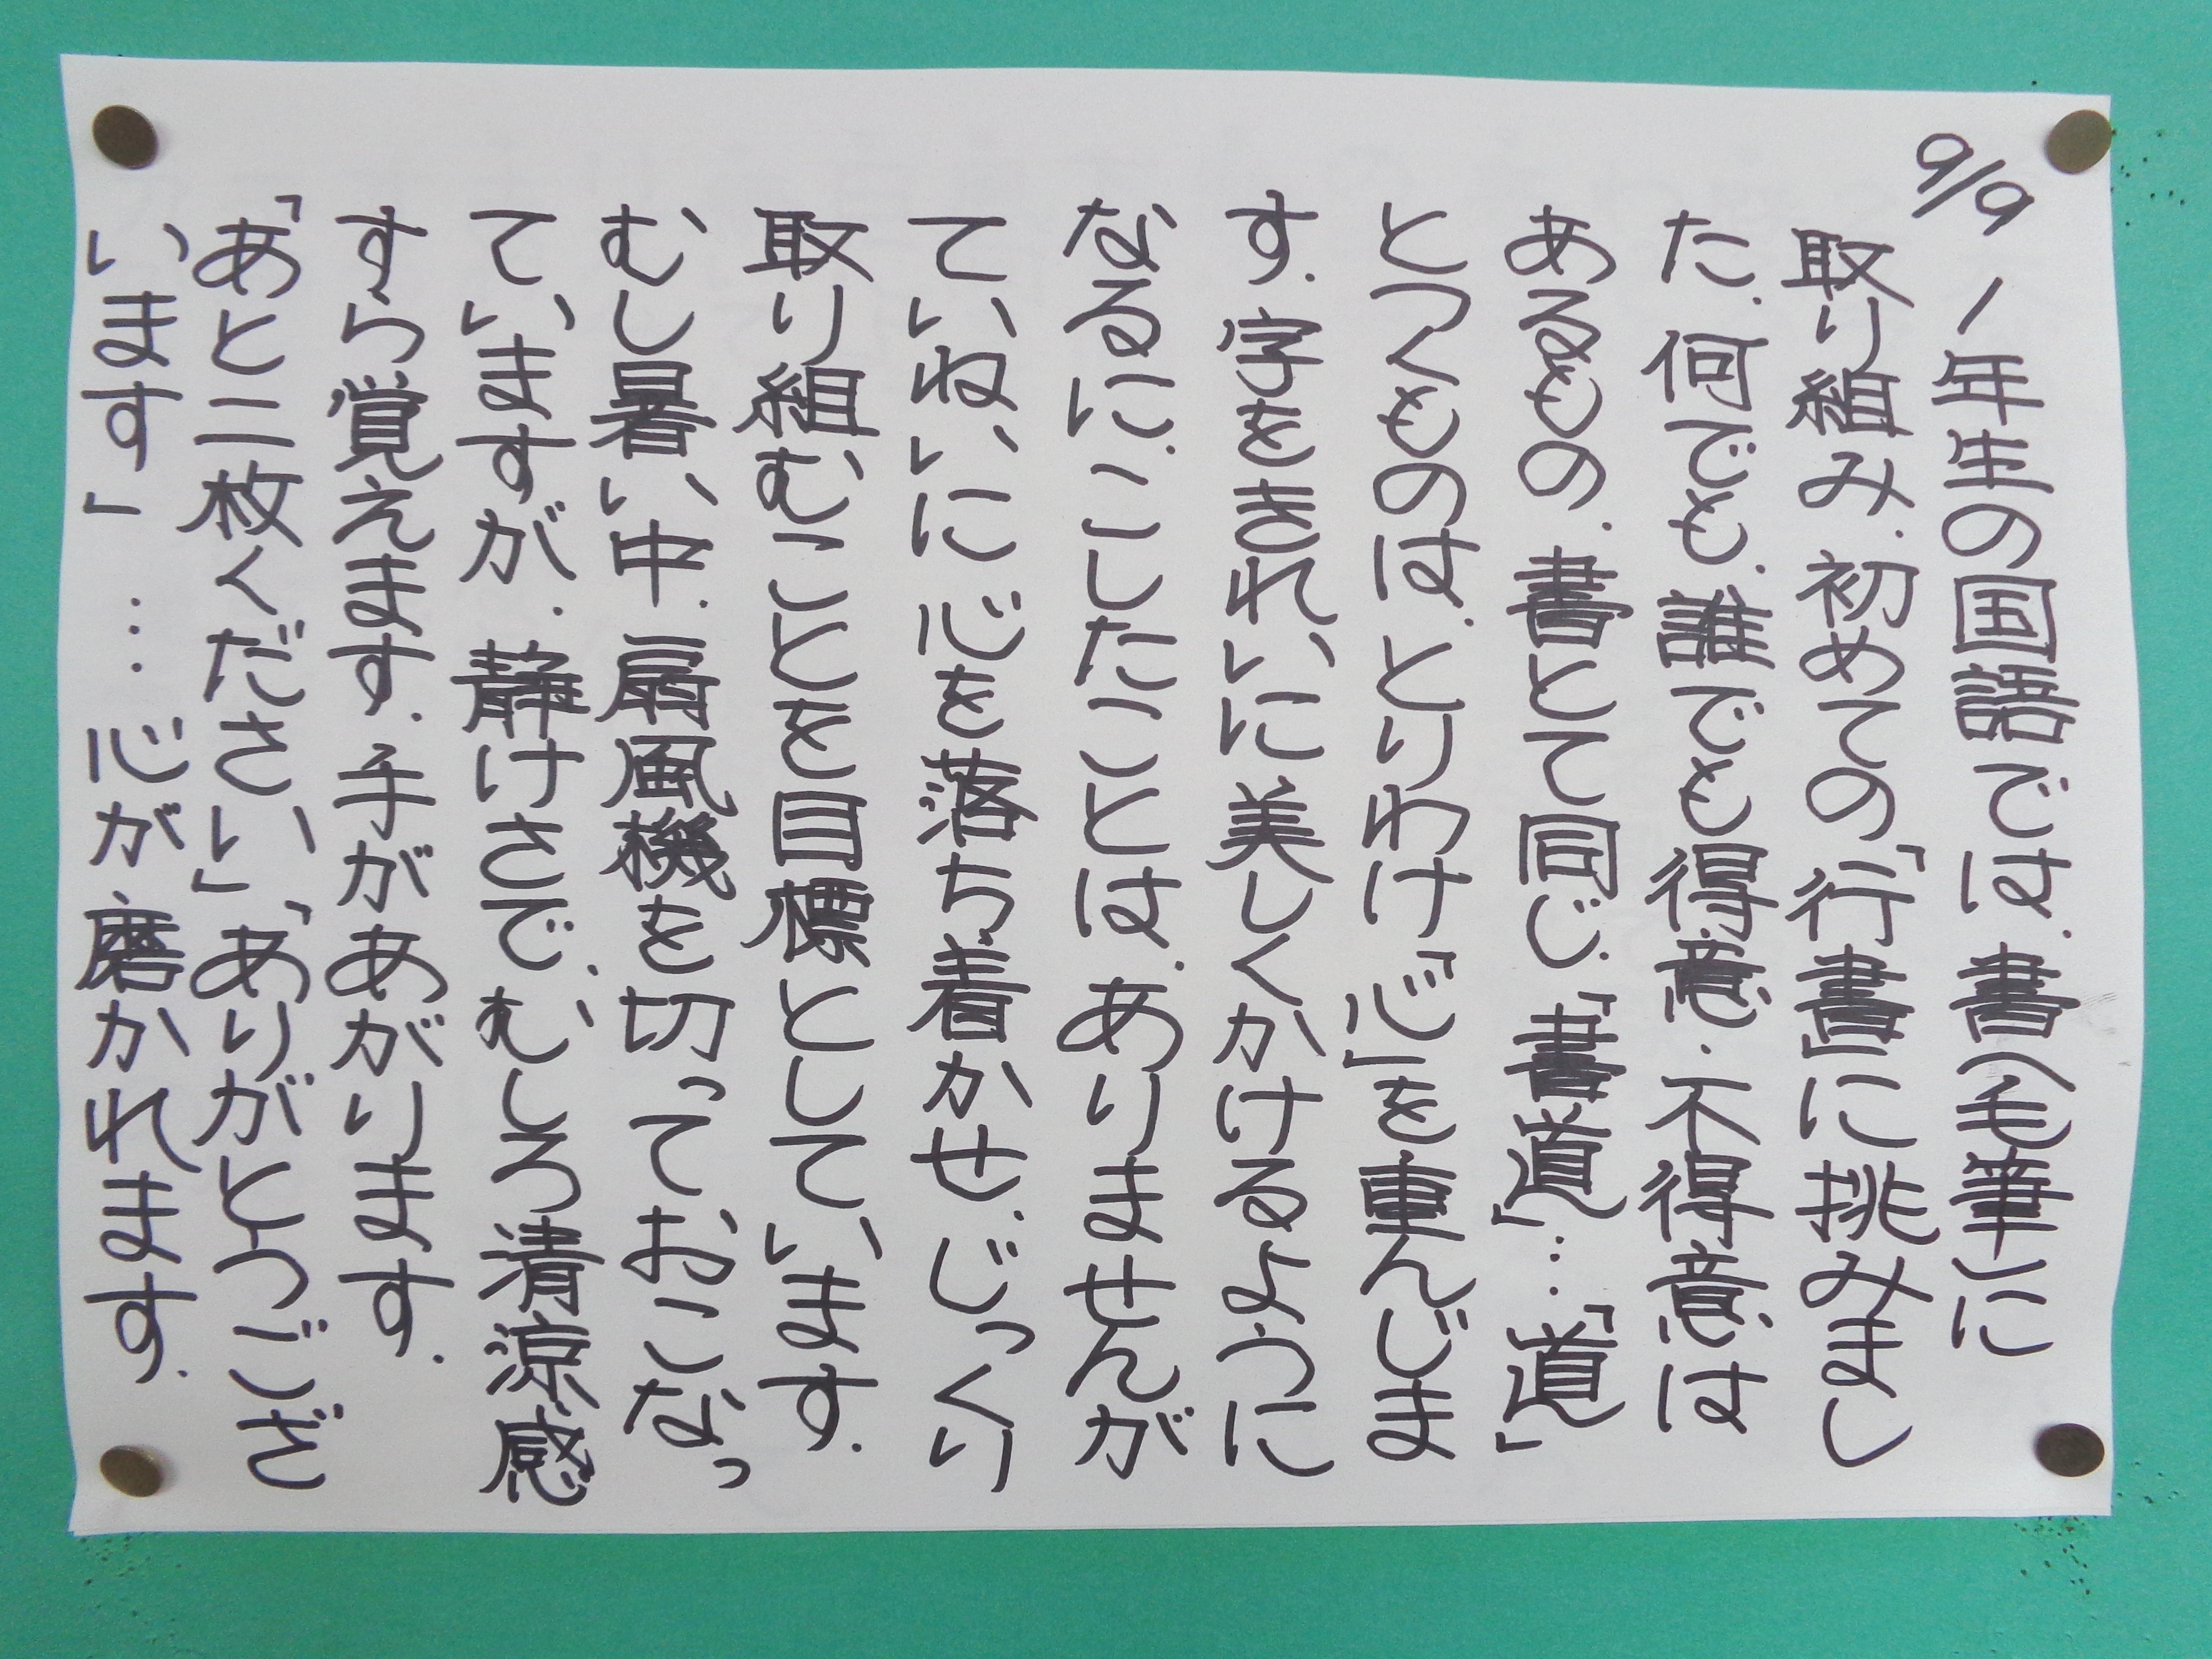 9/9
1年生の国語では、書(毛筆)に
取り組み、初めての「行書」に挑みまし
た。何でも、誰でも得意・不得意は
あるもの、書とて同じ、「書道」…「道」
とつくものは、とりわけ「心」を重んじま
す。字をきれいに美しくかけるように
なるに、こしたことは、ありませんが
ていねいに心を落ち着かせ、じっくり
取り組むことを目標としています。
むし暑い中、扇風機を切っておこなっ
ていますが、静けさで、むしろ清涼感
すら覚えます。手があがります。
「あと二枚ください」「ありがとうござ
います」…心が磨かれます。